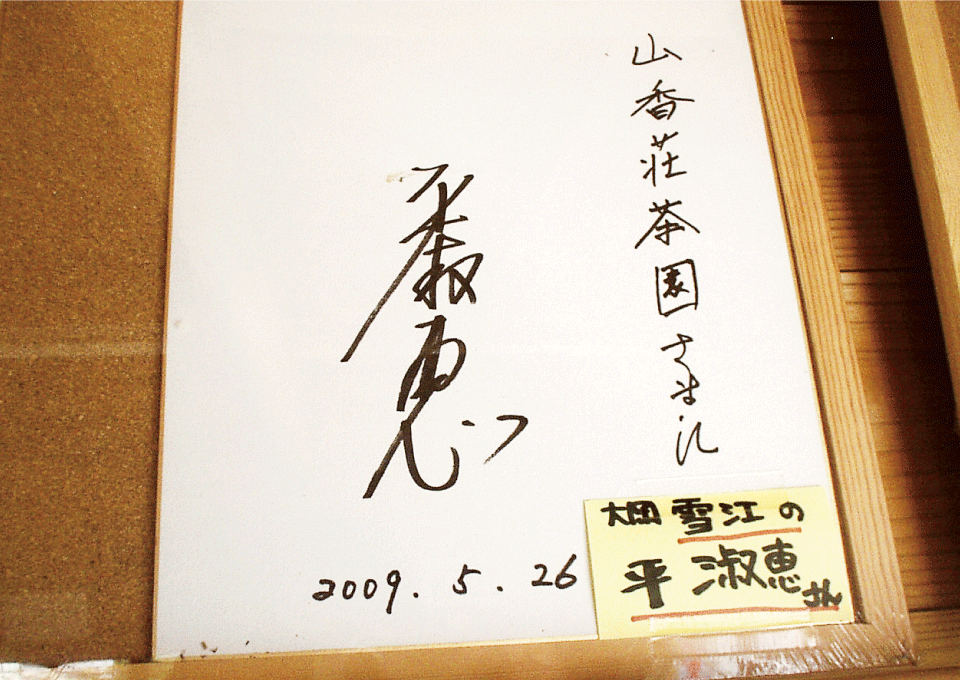 山香荘茶園さま江
平淑恵
2009.5.26
大岡雪江の
平 淑恵さん